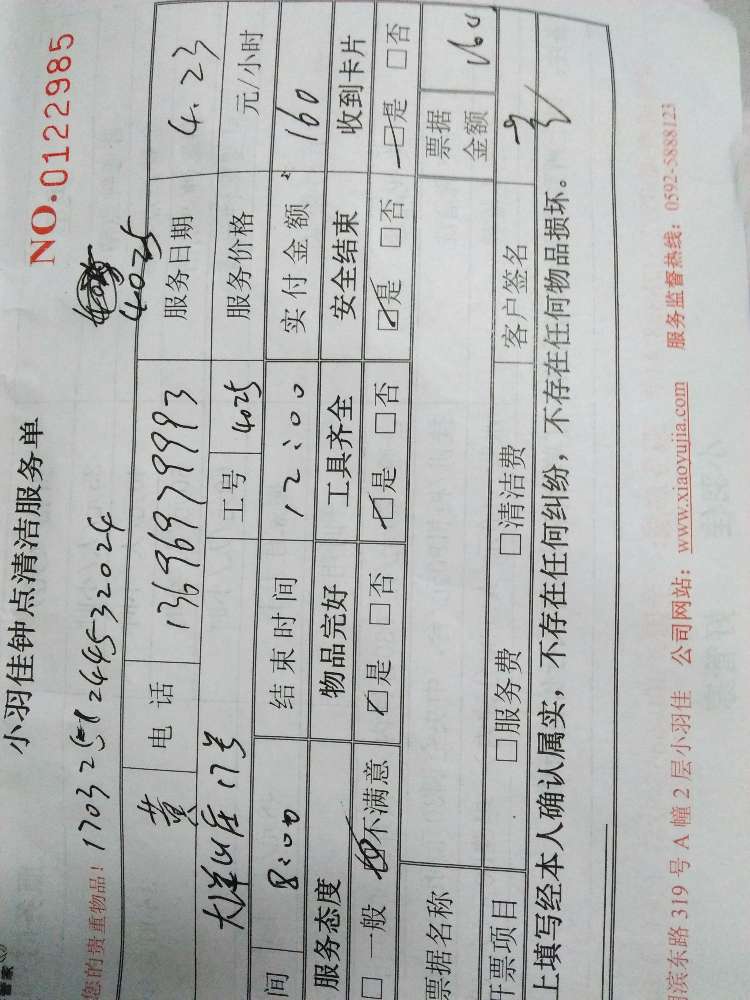 管家
小羽佳钟点清洁服务单
NO.0122985
您的贵重物品！
4025
黄 电话 13696979993 服务日期 4.23
17号 工号 4025 服务价格 元//小时
间 8:00 结束时间 12:00 实付金额 160
服务态度 物品完好 工具齐全 安全结束 收到卡片
□ 一般 □不满意 □是 □否 □是 □否 □是 □否 □是 □否
票据名称 票据金额 160
开票项目 □服务费 □清洁费 客户签名
上填写经本人确认属实，不存在任何纠纷，不存在任何物品损坏。
滨东路 319 号 A 幢 2 层小羽佳 公司网站：www.xiaoyujia.com 服务监督热线：0592-5888123